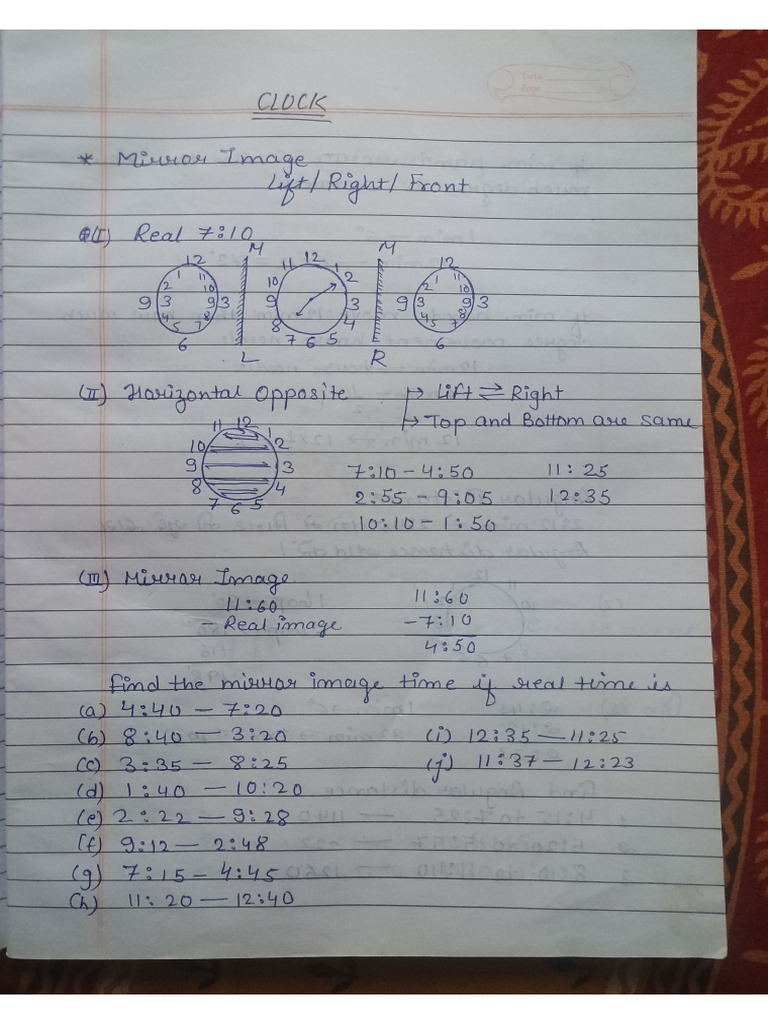 CLOCK
* Mirror Image
Lift/ Right/ Front
(I) Real 7:10
M
M
12
1
11
2
10
9
3
9
3
4
8
5
7
6
L
11
12
1
10
2
9
3
8
4
7
6
5
R
12
1
11
2
10
9
3
9
3
4
8
5
7
6
(II) Horizontal Opposite → Lift ⇌ Right
→ Top and Bottom are same
11 12 1
10 2
9 3
8 4
7 6 5
7:10 – 4:50 11:25
2:55 – 9:05 12:35
10:10 – 1:50
(III) Mirror Image
11:60 11:60
– Real image – 7:10
4:50
Find the mirror image time if real time is
(a) 4:40 — 7:20
(b) 8:40 — 3:20 (i) 12:35 — 11:25
(c) 3:35 — 8:25 (j) 11:37 — 12:23
(d) 1:40 — 10:20
(e) 2:22 — 9:28
(f) 9:12 — 2:48
(g) 7:15 – 4:45
(h) 11:20 — 12:40